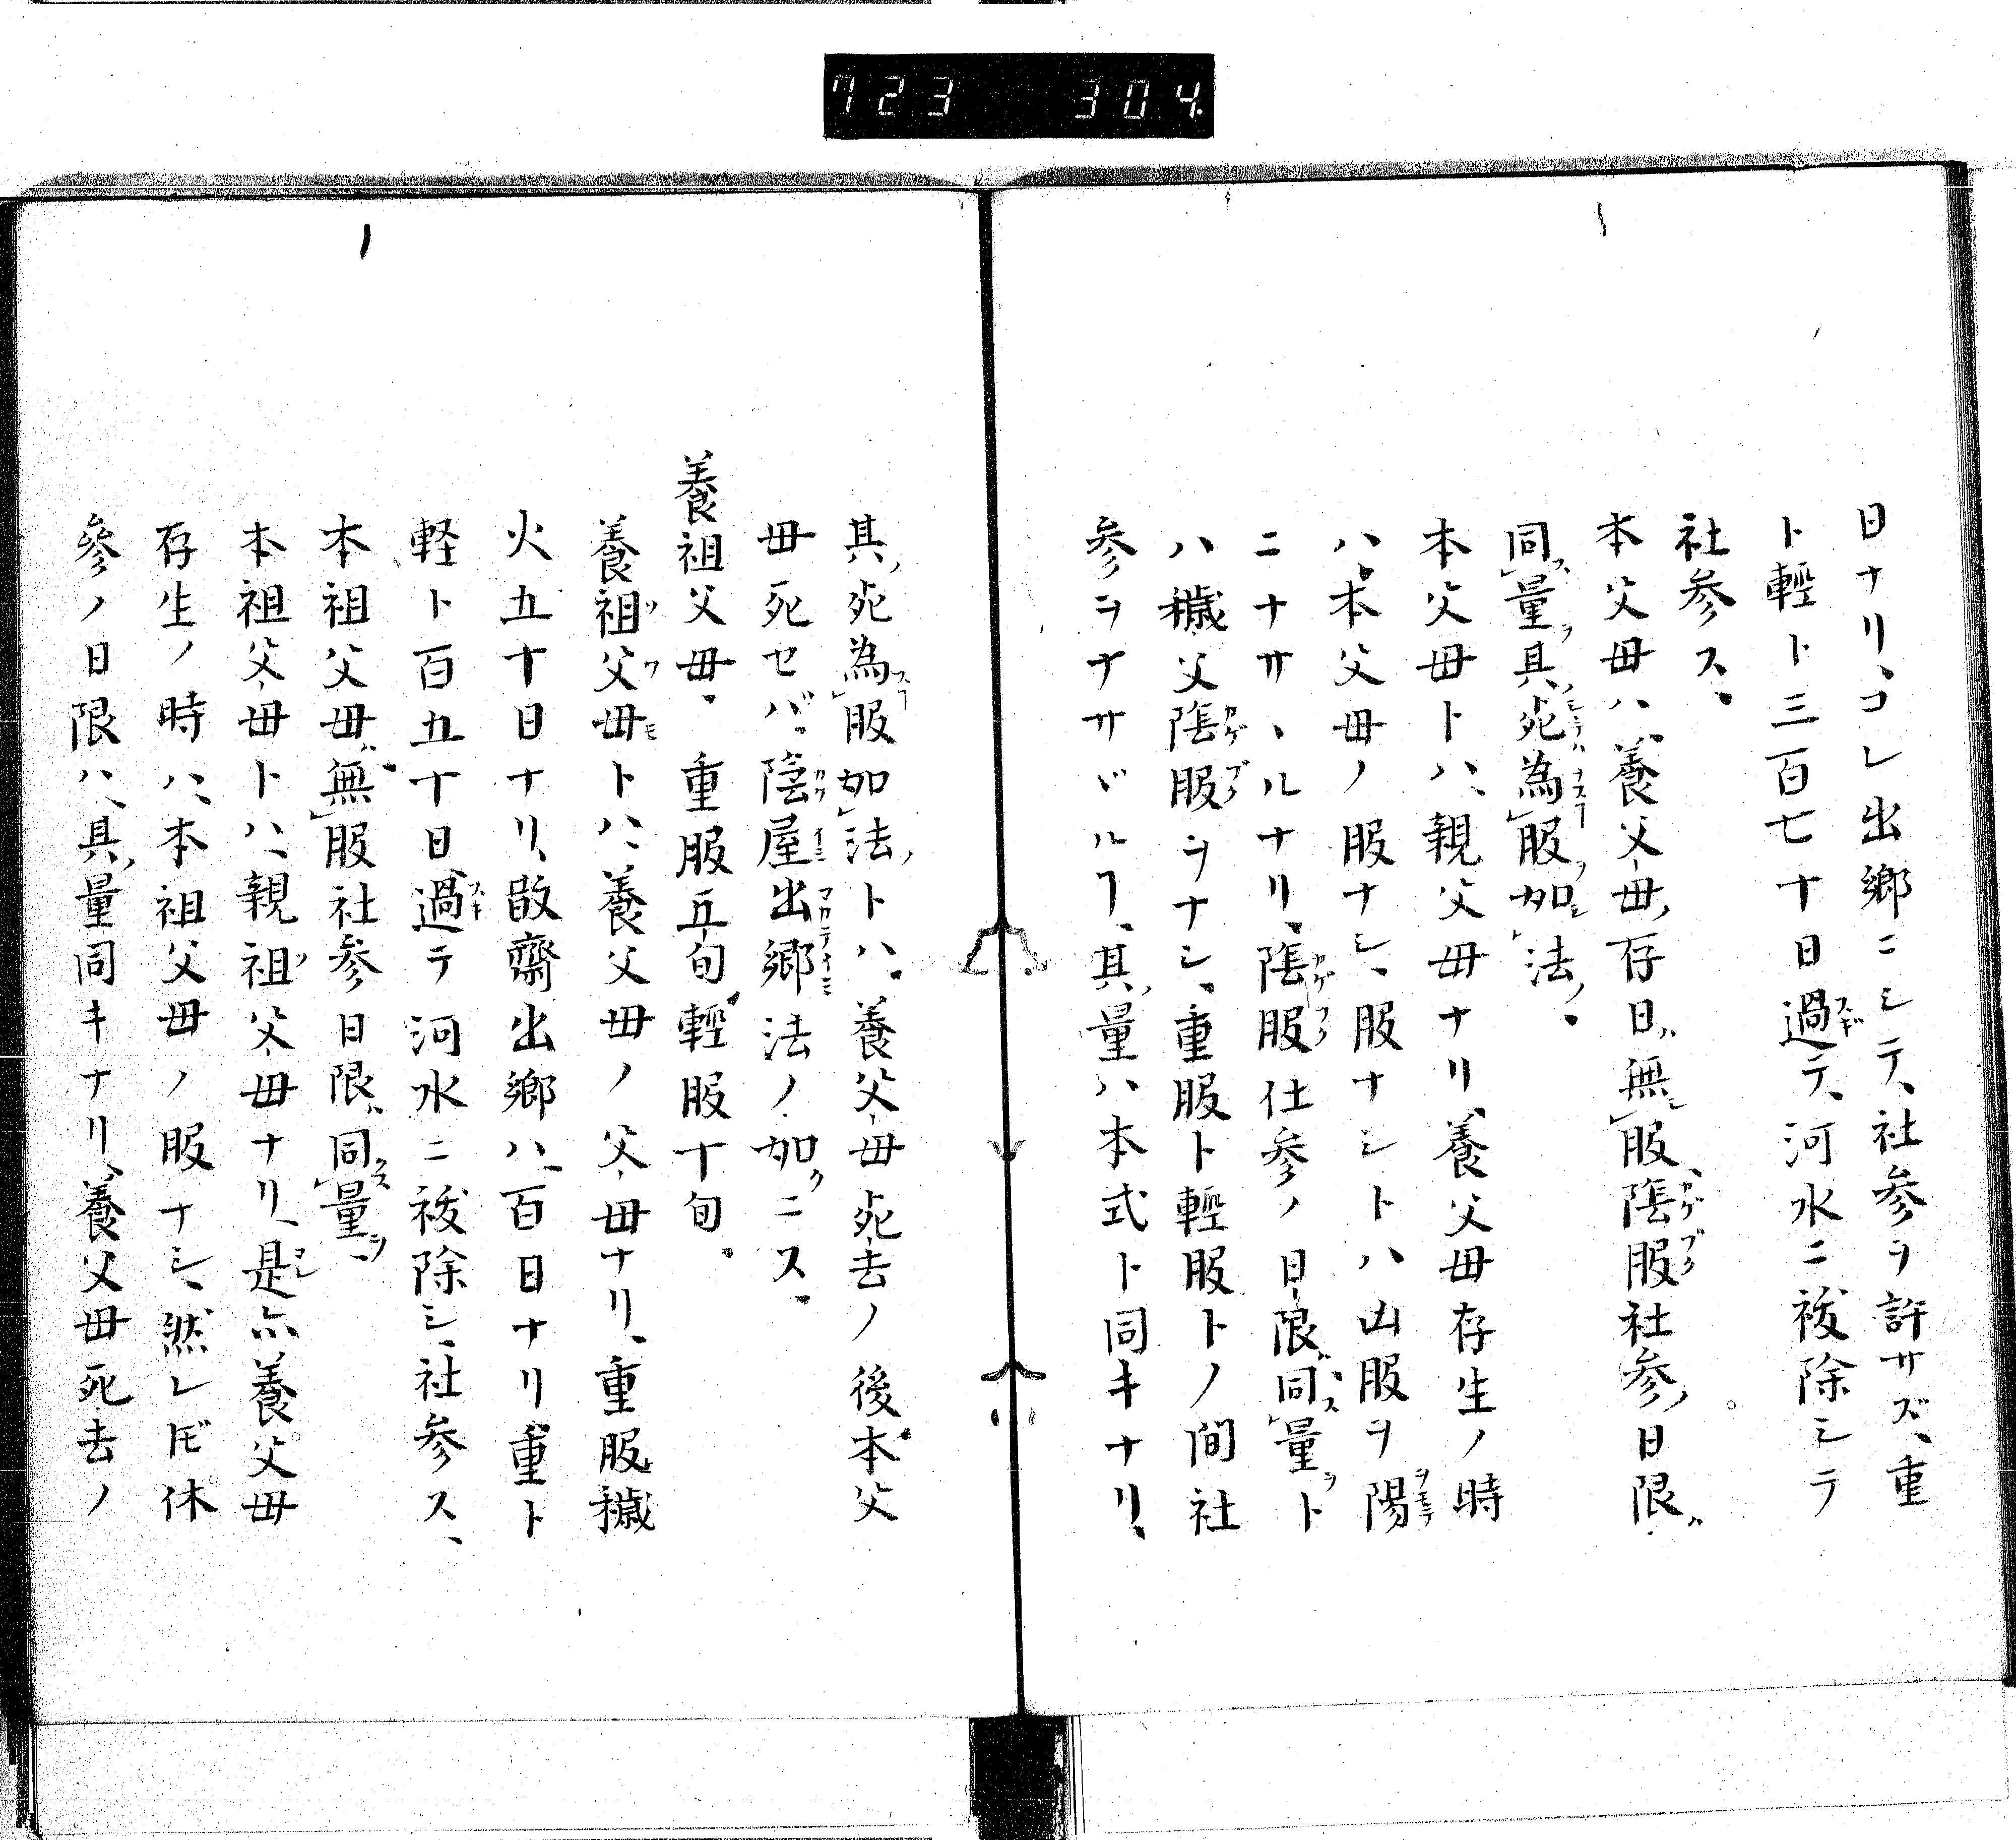 723 304
日ナリ、コレ出鄉ニシテ、社参ヲ許サズ、重
ト輕ト三百七十日過テ、河水ニ祓除シテ
社参ス、
本父母ハ、養父母存日、無服、陰服社参ノ日限
同量其死為服如法、
本父母トハ、親父母ナリ、養父母存生ノ時
ハ、本父母ノ服ナシ、服ナシトハ凶服ヲ陽
ニナサヽルナリ、陰服仕参ノ日限同量ト
ハ穢父陰服ヲナシ、重服ト輕服トノ間社
参ヲナサヾルヿ、其量ハ本式ト同キナリ、
其死為服如法トハ、養父母死去ノ後本父
母死セバ、陰屋出鄉法ノ如ニス、
養祖父母、重服五旬、輕服十旬、
養祖父母トハ、養父母ノ父母ナリ、重服穢
火五十日ナリ、散齋出鄉ハ、百日ナリ重ト
軽ト百五十日、過テ河水ニ祓除シ、社参ス、
本祖父母、無服社参日限、同量、
本祖父母トハ、親祖父母ナリ、是亦養父母
存生ノ時ハ、本祖父母ノ服ナシ、然レ𪜈休
參ノ日限ハ、其量同キナリ、養父母死去ノ